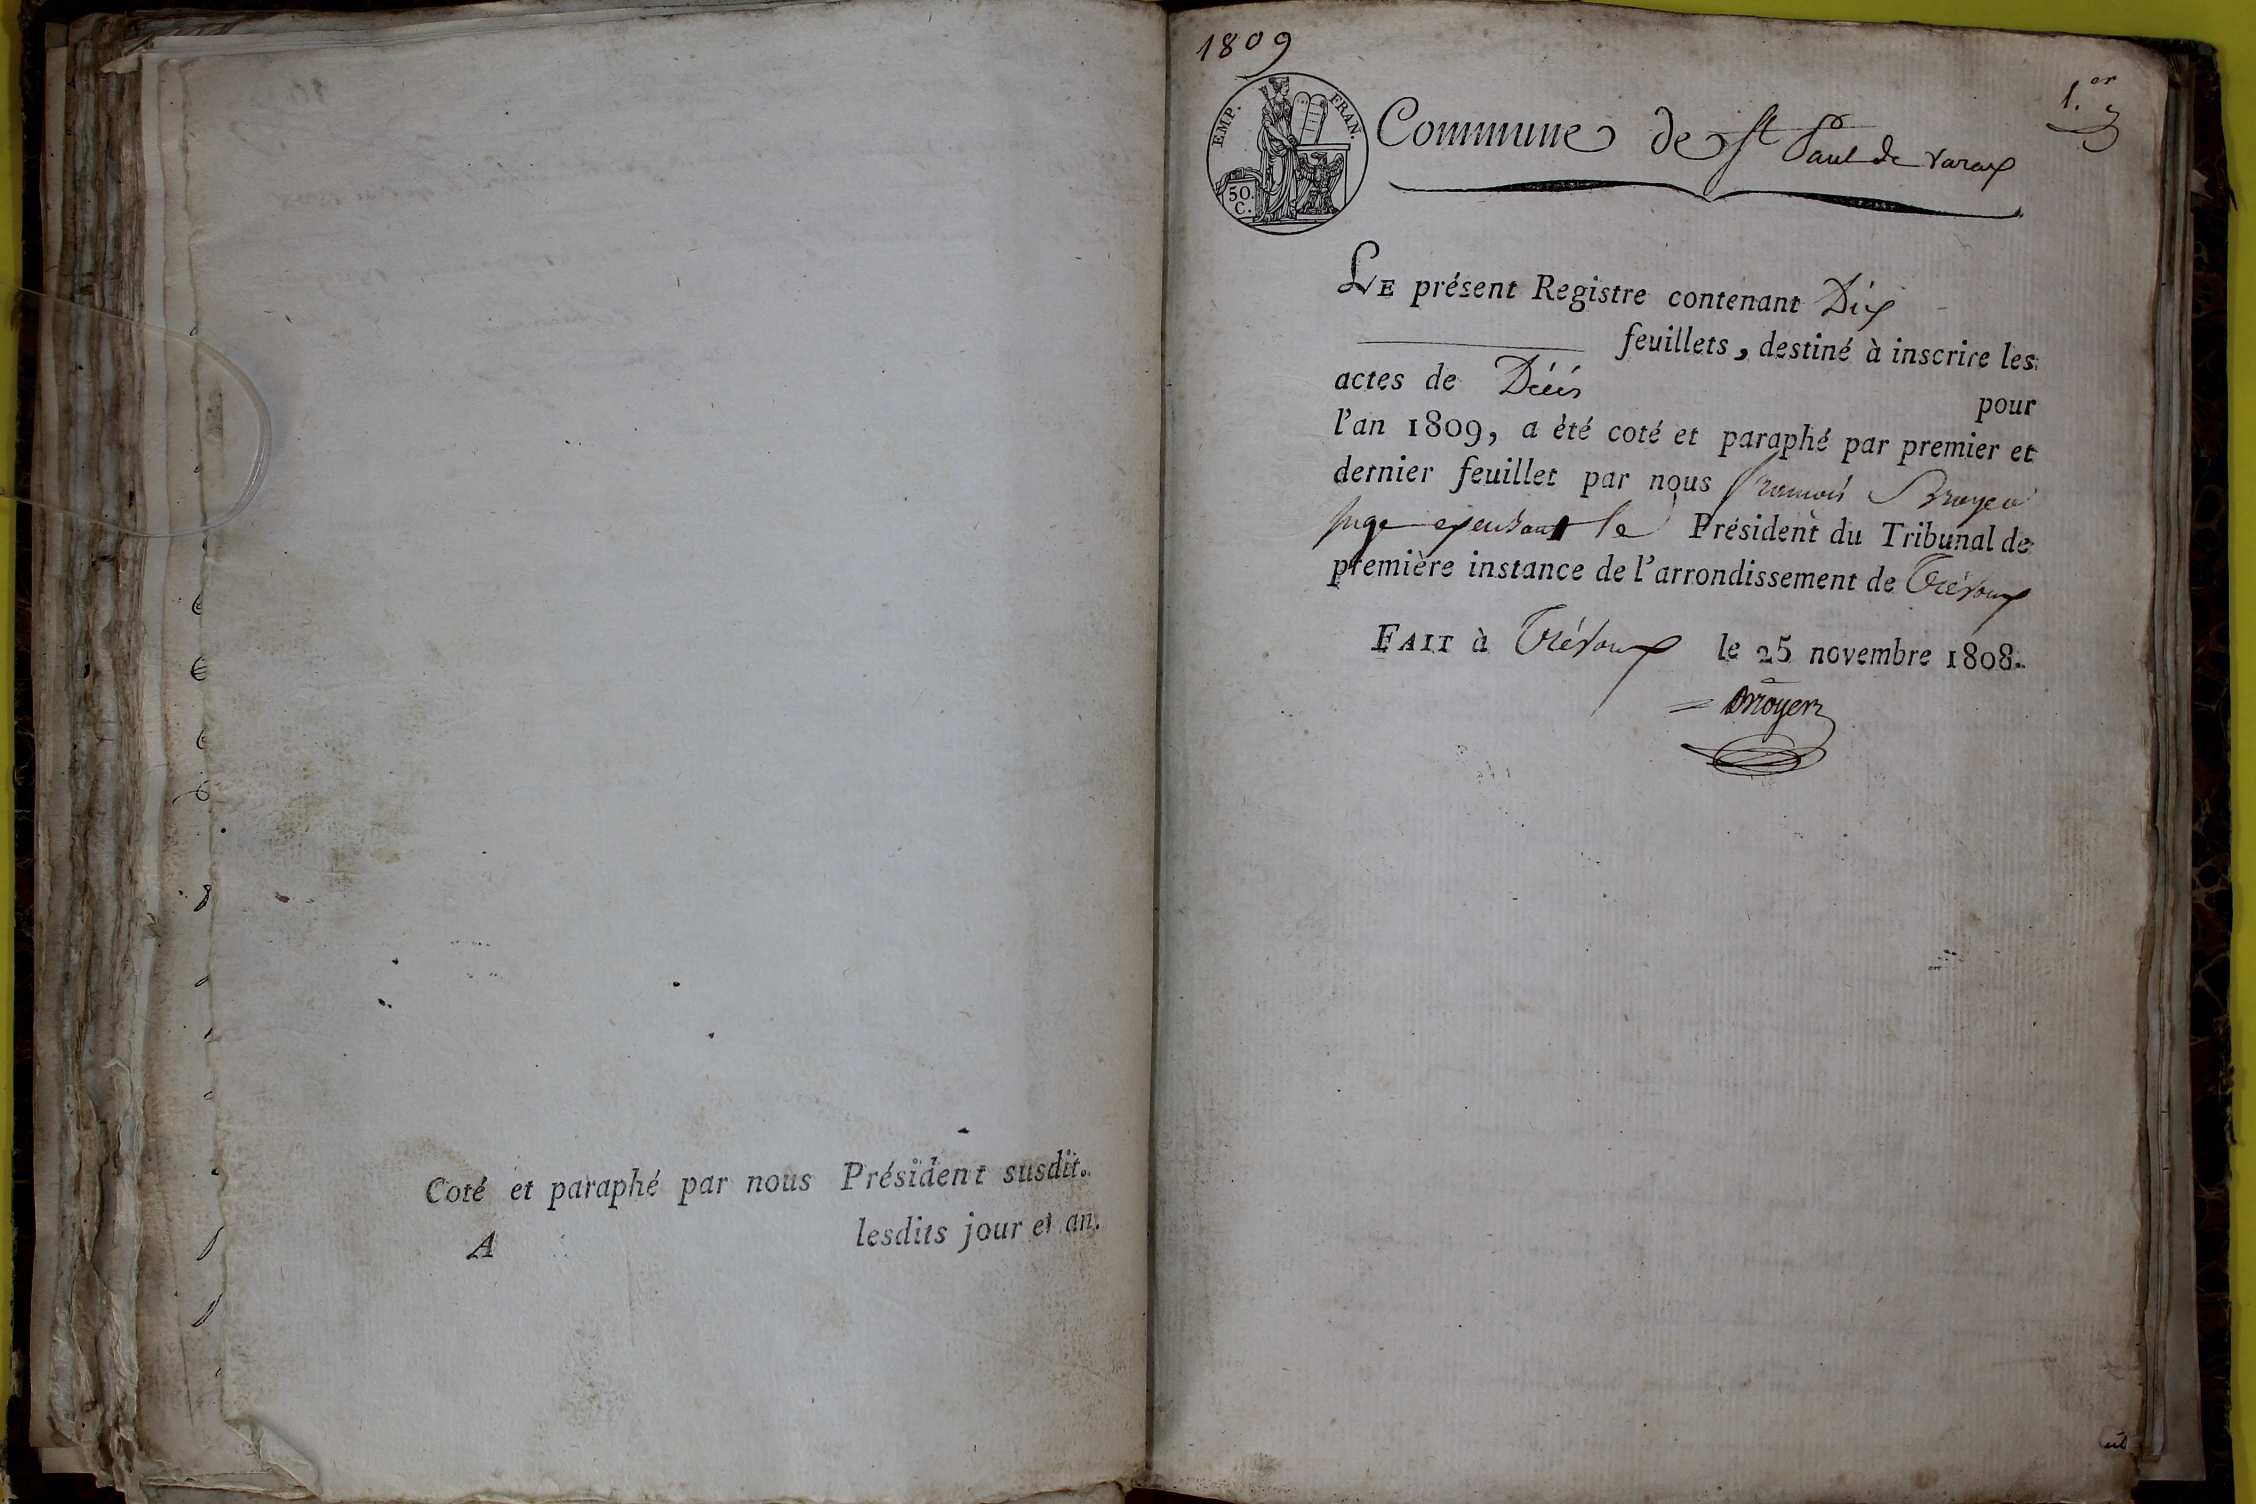 Coté et paraphé par nous Président susdit.
A lesdits jour et an.
1809
1.er
EMP. FRAN.
50.
C.
Commune de St Paul de varax
LE présent Registre contenant Dix
feuillets, destiné à inscrire les
actes de Décès pour
l'an 1809, a été coté et paraphé par premier et
dernier feuillet par nous francois
juge le Président du Tribunal de
première instance de l'arrondissement de Trévoux
FAIT à Trévoux le 25 novembre 1808.